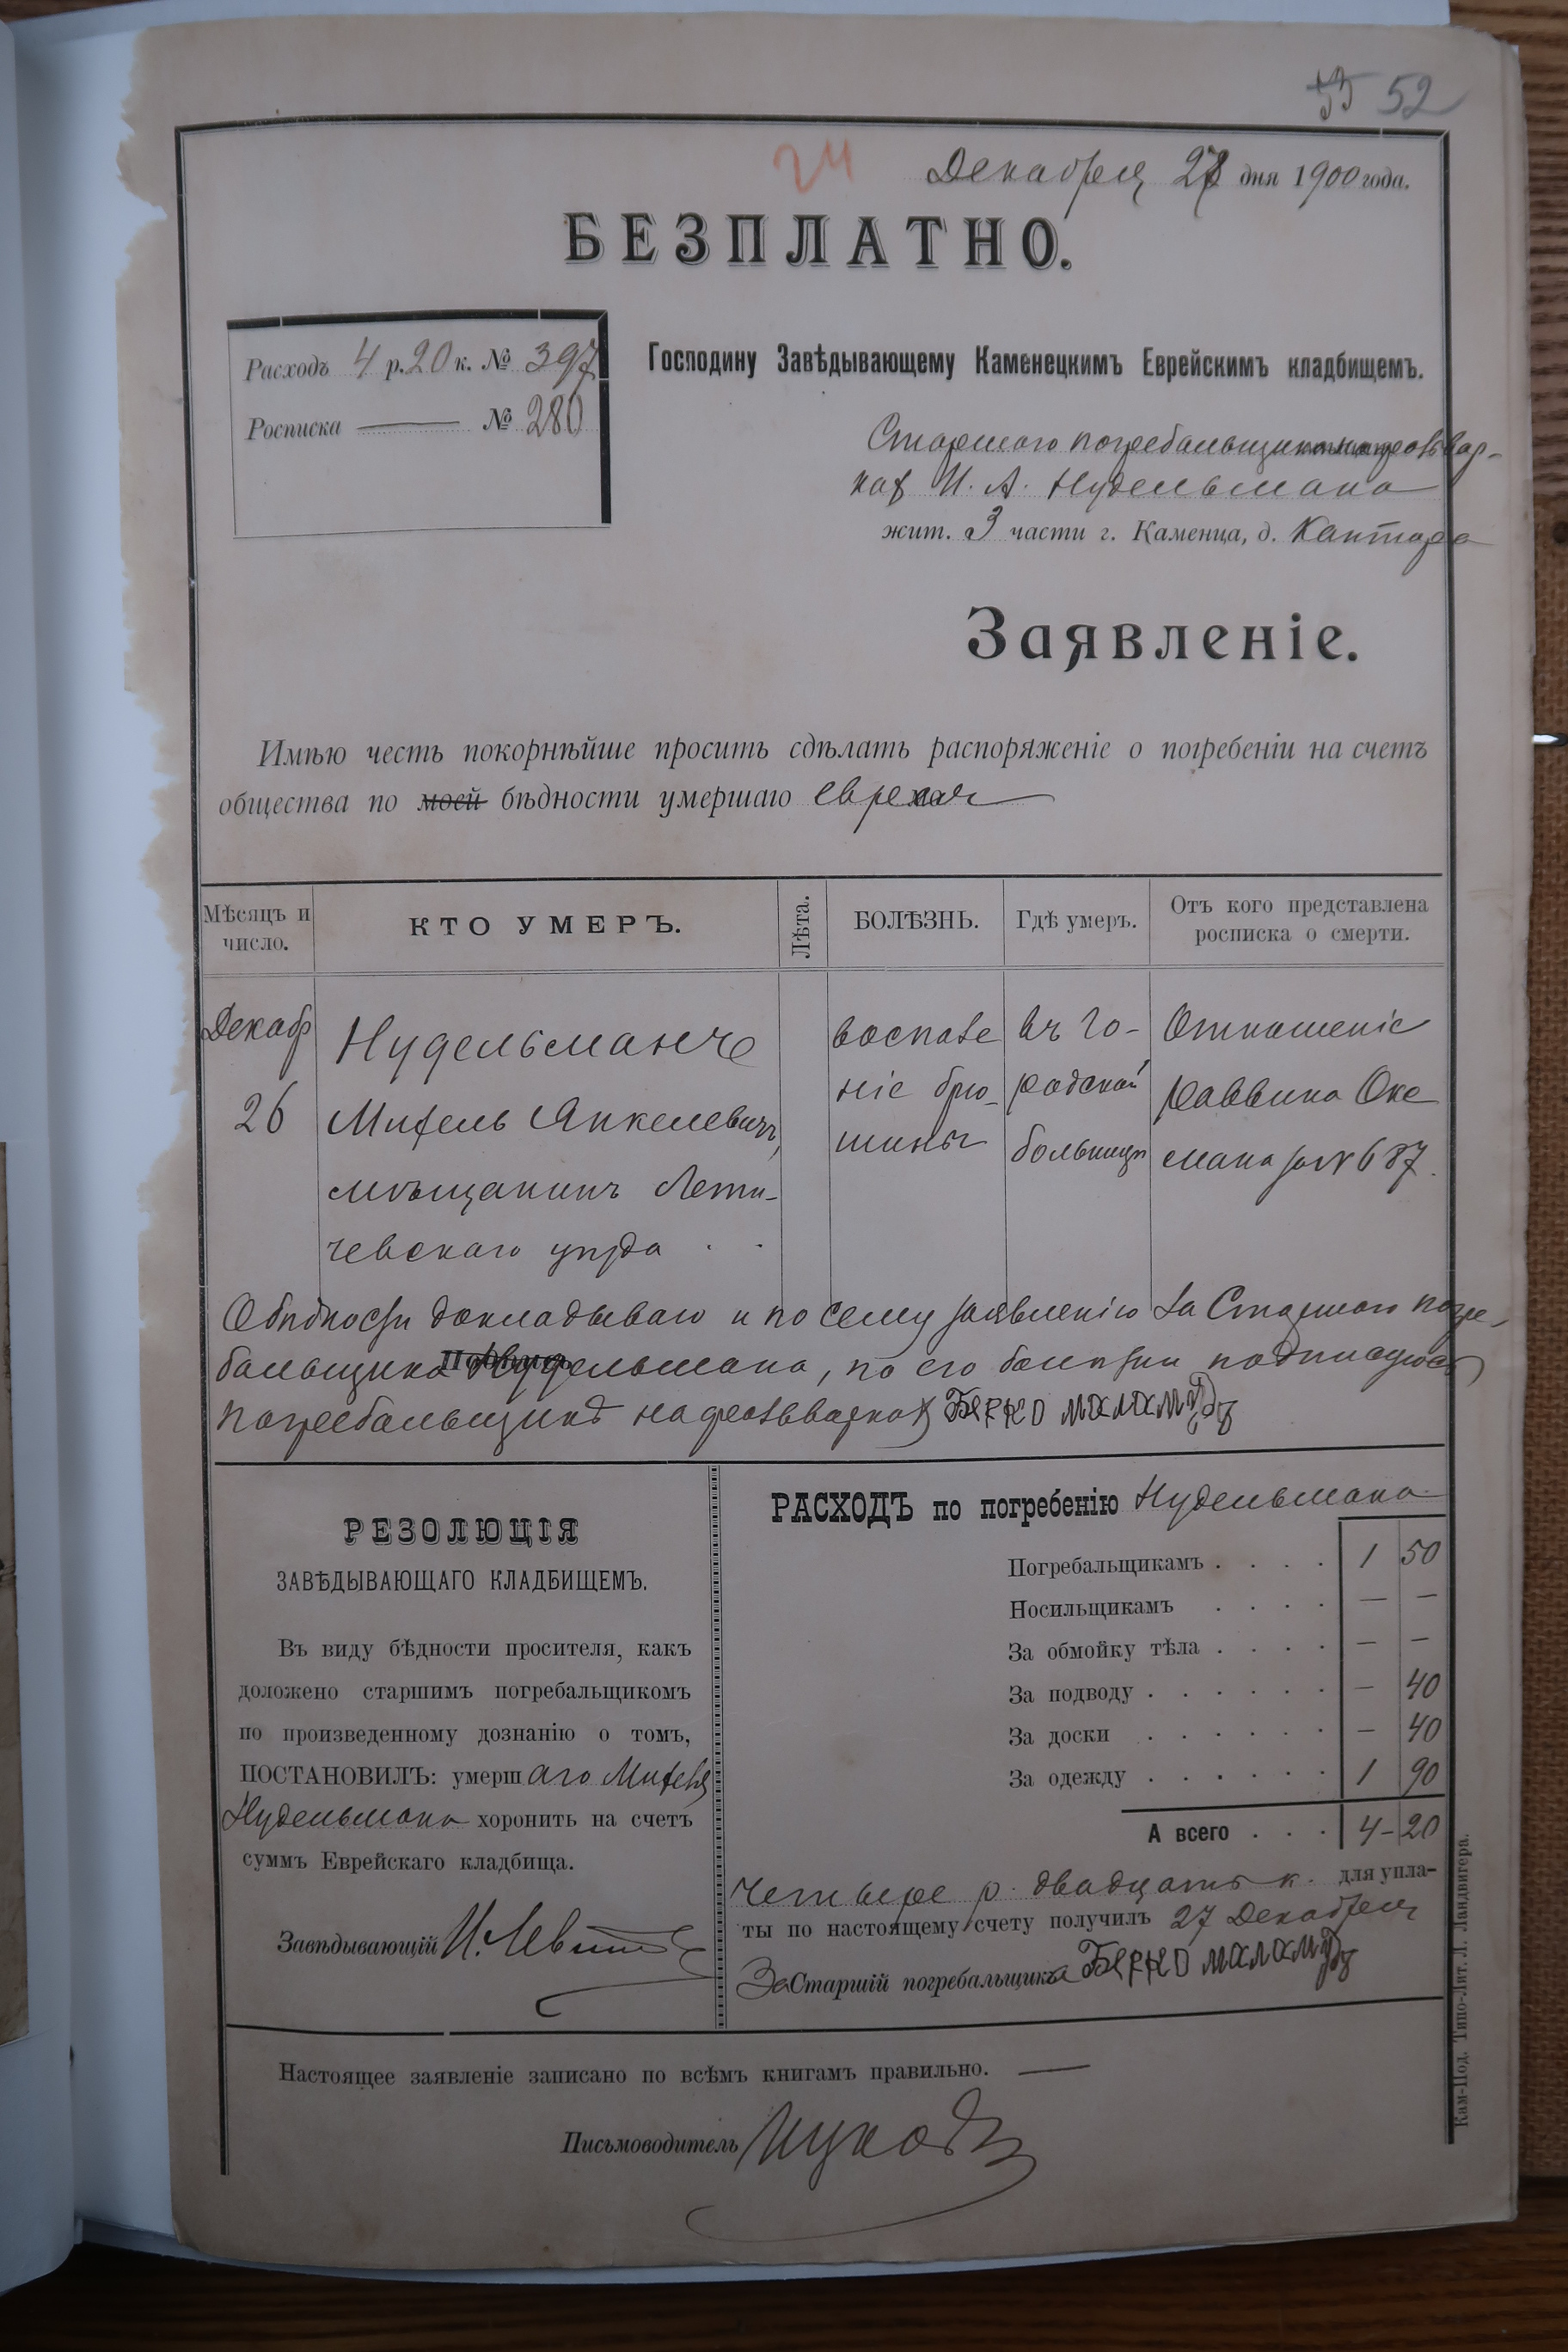 52
24
Декабря 27 дня 1900 года.
БЕЗПЛАТНО.
Расходъ 4 р. 20 к. № 397
Росписка — № 280
Господину Завѣдывающему Каменецкимъ Еврейскимъ кладбищемъ.
Старшого погребальщика на фольвар-
ках И. А. Нудельмана
жит. 3 части г. Каменца, д. Кантора
Заявленіе.
Имѣю честь покорнѣйше просить сдѣлать распоряженіе о погребеніи на счетъ
общества по моей бѣдности умершаго еврея
Мѣсяцъ и число.
КТО УМЕРЪ.
Лѣта.
БОЛѢЗНЬ.
Гдѣ умеръ.
Отъ кого представлена росписка о смерти.
Декаб
26
Нудельманъ
Михель Янкелевичъ,
мѣщанинъ Лети-
чевскаго уѣзда
воспале
ніе брю-
шины
въ го-
родской
больницѣ
Отношеніе
раввина Окс
мана за № 687.
О бѣдности докладываю и по сему заявленію за Старшого погре-
бальщика Нудельмана, по его болѣзни подписуюсь
погребальщикъ на фольваркахъ Берко маламудъ
РЕЗОЛЮЦІЯ
ЗАВѢДЫВАЮЩАГО КЛАДБИЩЕМЪ.
Въ виду бѣдности просителя, какъ
доложено старшимъ погребальщикомъ
по произведенному дознанію о томъ,
ПОСТАНОВИЛЪ: умершаго Михеля
Нудельмана хоронить на счетъ
суммъ Еврейскаго кладбища.
Завѣдывающій И. Левит
РАСХОДЪ по погребенію Нудельмана
Погребальщикамъ . . . . 1 50
Носильщикамъ . . . . — —
За обмойку тѣла . . . . — —
За подводу . . . . . . — 40
За доски . . . . . . — 40
За одежду . . . . . . 1 90
А всего . . . 4-20
Четыре р. двадцать к. для упла-
ты по настоящему счету получилъ 27 Декабря
За Старшій погребальщика Берко маламудъ
Настоящее заявленіе записано по всѣмъ книгамъ правильно. —
Письмоводитель
Кам-Под. Типо-Лит. Л. Ландвигера.